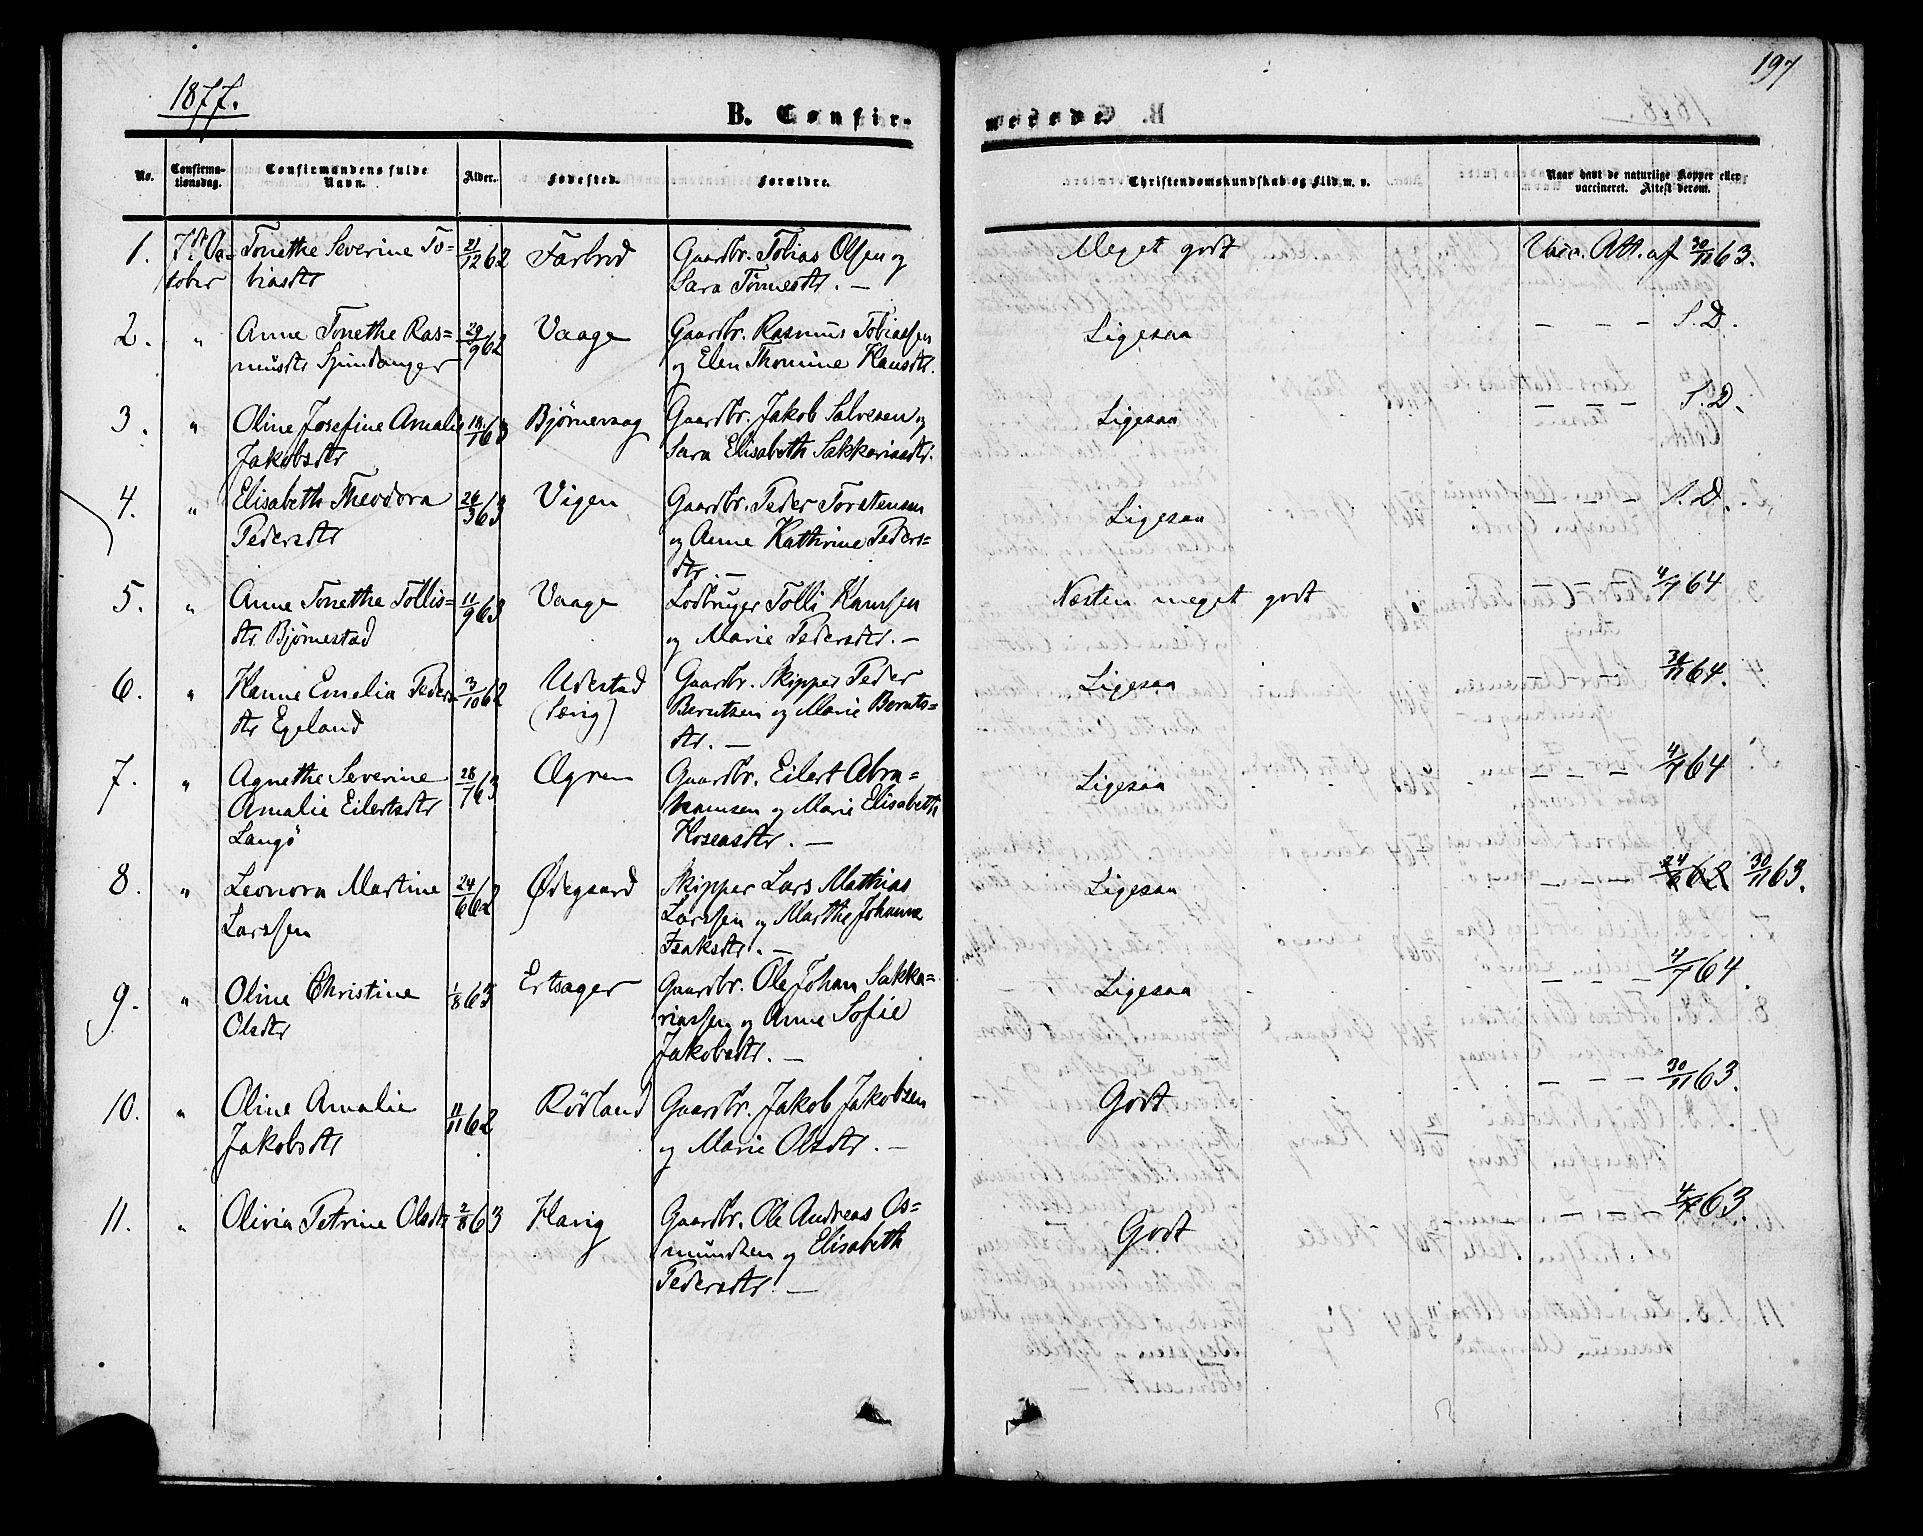 1877.
197
B. Confir-
No. Confirma-tionsdag. Confirmandens fulde Navn. Alder. Fødested. Forældre. Christendomskundskab og Flid m. v. Naar havt de naturlige Kopper eller vaccineret. Attest derom.
1. 7de Oc- Tonethe Severine To- 21/12 62 Farbrod Gaardbr. Tobias Olsen og Meget godt Vacc. Att. af 30/11 63.
tober biasdtr Sara Tønnesdtr. —
2. " Anne Tonethe Ras- 29/9 62 Vaage Gaardbr. Rasmus Tobiassen Ligesaa — — — S. D.
musdtr Spindanger og Elen Thomine Hansdtr.
3. " Oline Josefine Amalie Bjørnevaag Gaardbr. Jakob Salvesen og Ligesaa — — — S. D.
Jakobsdtr Sara Elisabeth Sakkariasdtr.
4. " Elisabeth Theodora 26/3 63 Vigen Gaardbr. Peder Torstensen Ligesaa — — — S. D.
Pedersdtr og Anne Kathrine Peders-
dtr. —
5. " Anne Tonethe Tollis- 11/9 63 Vaage Lodbruger Tolli Hanssen Næsten meget godt — — — 4/7 64
dtr Bjørnestad og Marie Pedersdtr. —
6. " Hanne Emelia Peders- 3/10 62 Udestad Gaardbr. Skipper Peder Ligesaa — — — 64.
dtr Egeland (Særig) Berntsen og Marie Bernts-
dtr. —
7. " Agnethe Severine 28/7 63 Øgren Gaardbr. Eilert Abra- Ligesaa — — — 4/7 64
Amalie Eilertsdtr hamsen og Marie Elisabeth
Langö Hoseasdtr. —
8. " Leonora Martine 24/6 62 Ødegaard Skipper Lars Mathias Ligesaa — — — 24/6 62 30/11 63.
Larssen Larssen og Marthe Johanne
Isaksdtr. —
9. " Oline Christine 1/8 63 Ertsager Gaardbr. Ole Johan Sakka- Ligesaa — — — 4/7 64.
Olsdtr riassen og Anne Sofie
Jakobsdtr. —
10. " Oline Amalie 11/11 62 Rödland Gaardbr. Jakob Jakobsen Godt — — — 30/11 63.
Jakobsdtr og Marie Olsdtr. —
11. " Olivia Petrine Olsdtr 2/8 63 Havig Gaardbr. Ole Andreas Os- Godt — — — 4/7 63.
mundsen og Elisabeth
Pedersdtr. —